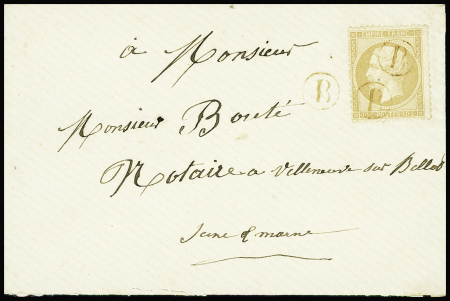 EMPIRE FRANC
à Monsieur
B
B
B
Monsieur Bouté
Notaire a Villeneuve sur Bellot
Seine & marne